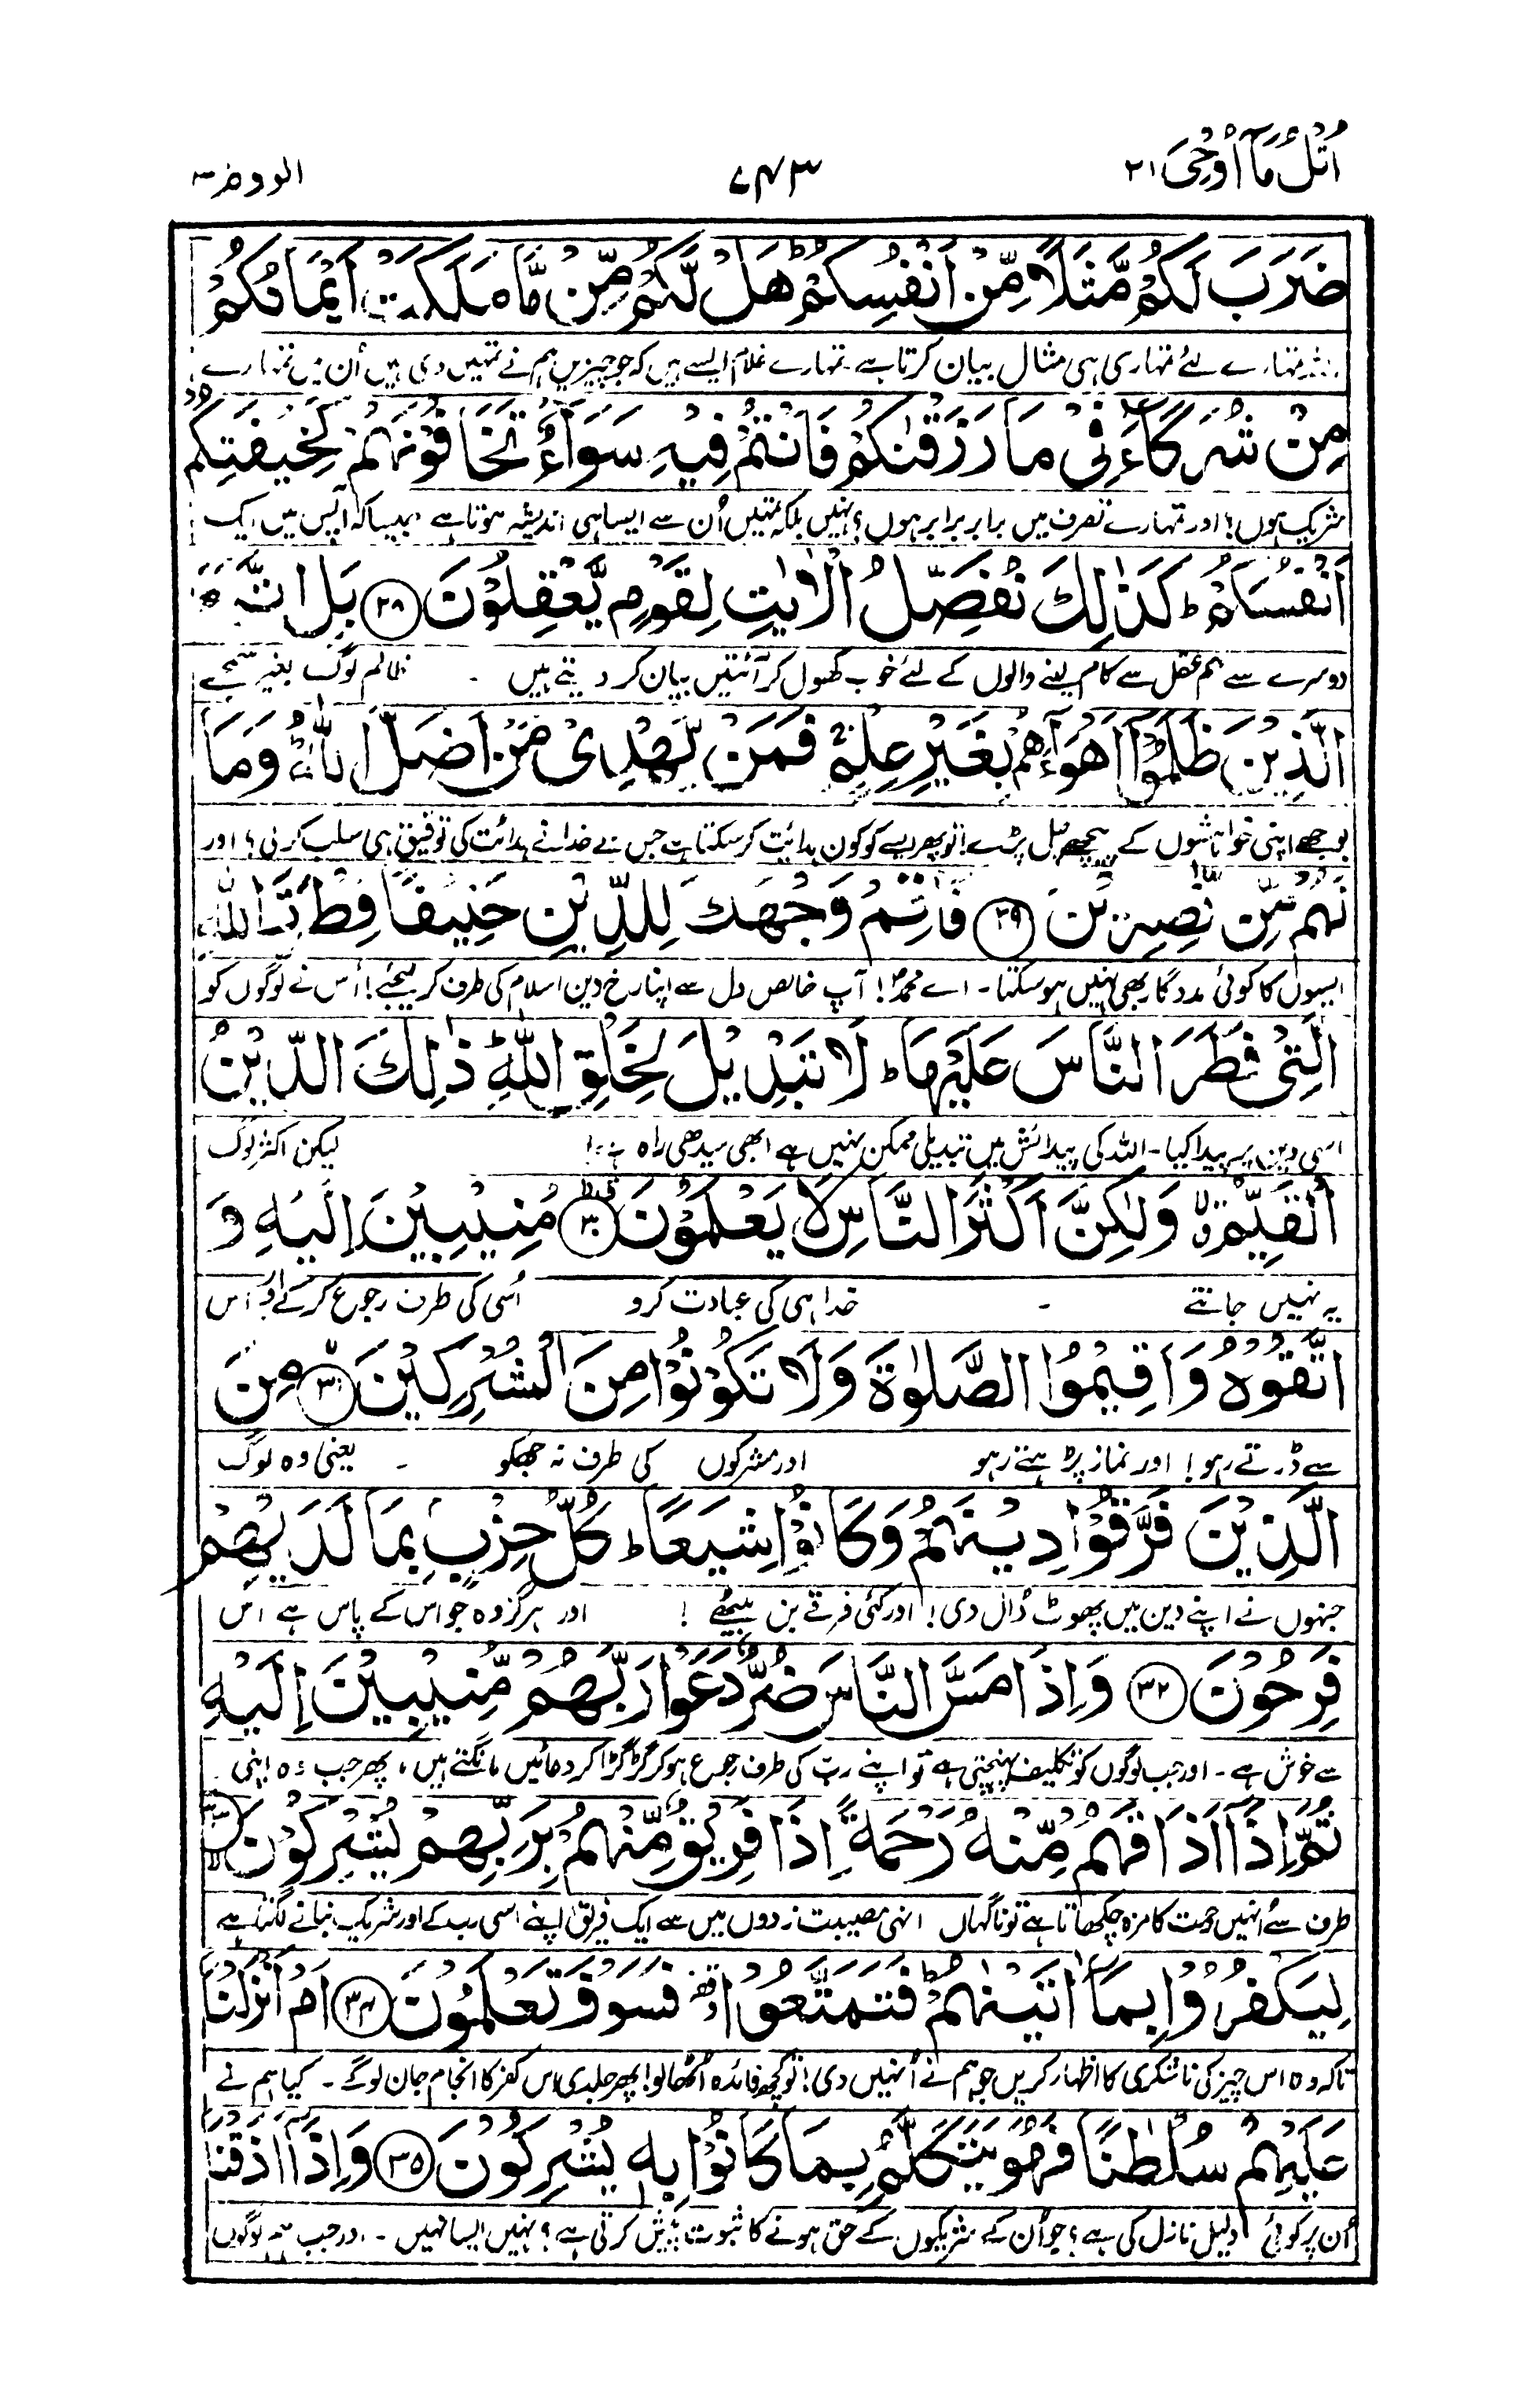 اُتْلُ مَآ اُوْحِیَ ۲۱
۷۴۳
الروم ۳۰
ضَرَبَ لَكُمْ مَّثَلًا مِّنْ اَنْفُسِكُمْ ؕ هَلْ لَّكُمْ مِّنْ مَّا مَلَكَتْ اَیْمَانُكُمْ
تمہارے لئے تمہاری ہی مثال بیان کرتا ہے۔ تمہارے غلام ایسے ہیں کہ جو چیزیں ہم نے تمہیں دی ہیں اُن میں تمہارے
مِّنْ شُرَكَآءَ فِیْ مَا رَزَقْنٰكُمْ فَاَنْتُمْ فِیْهِ سَوَآءٌ تَخَافُوْنَهُمْ كَخِیْفَتِكُمْ
شریک ہوں؟ اور تمہارے تصرف میں برابر برابر ہوں؟ نہیں بلکہ تمہیں اُن سے ایسا ہی اندیشہ ہوتا ہے جیسا کہ آپس میں ایک
اَنْفُسَكُمْ ؕ كَذٰلِكَ نُفَصِّلُ الْاٰیٰتِ لِقَوْمٍ یَّعْقِلُوْنَ ۲۸ بَلِ اتَّبَعَ
دوسرے سے ہم عقل سے کام لینے والوں کے لئے خوب کھول کر آئتیں بیان کر دیتے ہیں ۔ ظالم لوگ بغیر سمجھے
الَّذِیْنَ ظَلَمُوْۤا اَهْوَآءَهُمْ بِغَیْرِ عِلْمٍ ۚ فَمَنْ یَّهْدِیْ مَنْ اَضَلَّ اللّٰهُ ؕ وَمَا
بوجھے اپنی خواہشوں کے پیچھے چل پڑے! تو پھر ایسے کو کون ہدائیت کر سکتا ہے جس سے خدا نے ہدائت کی توفیق ہی سلب کر لی؟ اور
لَهُمْ مِّنْ نّٰصِرِیْنَ ۲۹ فَاَقِمْ وَجْهَكَ لِلدِّیْنِ حَنِیْفًا ؕ فِطْرَتَ اللّٰهِ
ایسوں کا کوئی مددگار بھی نہیں ہو سکتا ۔ اے محمدؐ! آپ خالص دل سے اپنا رخ دین اسلام کی طرف کر لیجئے! اُس نے لوگوں کو
الَّتِیْ فَطَرَ النَّاسَ عَلَیْهَا ؕ لَا تَبْدِیْلَ لِخَلْقِ اللّٰهِ ؕ ذٰلِكَ الدِّیْنُ
اسی دین پر پیدا کیا۔ اللہ کی پیدائش میں تبدیلی ممکن نہیں ہے ابھی سیدھی راہ ہے! لیکن اکثر لوگ
الْقَیِّمُ ۙ وَلٰكِنَّ اَكْثَرَ النَّاسِ لَا یَعْلَمُوْنَ ۳۰ مُنِیْبِیْنَ اِلَیْهِ وَ
یہ نہیں جانتے ۔ خدا ہی کی عبادت کرو اُسی کی طرف رجوع کر کے اور اس
اتَّقُوْهُ وَاَقِیْمُوا الصَّلٰوةَ وَلَا تَكُوْنُوْا مِنَ الْمُشْرِكِیْنَ ۳۱ مِنَ
سے ڈرتے رہو! اور نماز پڑہتے رہو اور مشرکوں کی طرف نہ جھکو ۔ یعنی وہ لوگ
الَّذِیْنَ فَرَّقُوْا دِیْنَهُمْ وَكَانُوْا شِیَعًا ؕ كُلُّ حِزْبٍۭ بِمَا لَدَیْهِمْ
جنہوں نے اپنے دین میں پھوٹ ڈال دی! اور کئی فرقے بن بیٹھے ! اور ہر گروہ جو اس کے پاس ہے اس
فَرِحُوْنَ ۳۲ وَاِذَا مَسَّ النَّاسَ ضُرٌّ دَعَوْا رَبَّهُمْ مُّنِیْبِیْنَ اِلَیْهِ
سے خوش ہے ۔ اور جب لوگوں کو تکلیف پہنچتی ہے تو اپنے ربّ کی طرف رجوع ہو کر گڑگڑا کر دعائیں مانگتے ہیں، پھر جب وہ اپنی
ثُمَّ اِذَاۤ اَذَاقَهُمْ مِّنْهُ رَحْمَةً اِذَا فَرِیْقٌ مِّنْهُمْ بِرَبِّهِمْ یُشْرِكُوْنَ ۳۳
طرف سے اُنہیں رحمت کا مزہ چکھاتا ہے تو ناگہاں انہی مصیبت زدوں میں سے ایک فریق اپنے اسی رب کے اور شریک بنانے لگتا ہے
لِیَكْفُرُوْا بِمَاۤ اٰتَیْنٰهُمْ ؕ فَتَمَتَّعُوْا ۥ فَسَوْفَ تَعْلَمُوْنَ ۳۴ اَمْ اَنْزَلْنَا
تاکہ وہ اس چیز کی ناشکری کا اظہار کریں جو ہم نے اُنہیں دی! تو کچھ فائدہ اُٹھا لو! پھر جلدی اس کفر کا انجام جان لو گے ۔ کیا ہم نے
عَلَیْهِمْ سُلْطٰنًا فَهُوَ یَتَكَلَّمُ بِمَا كَانُوْا بِهٖ یُشْرِكُوْنَ ۳۵ وَاِذَاۤ اَذَقْنَا
اُن پر کوئی دلیل نازل کی ہے؟ جو اُن کے شریکوں کے حق ہونے کا ثبوت پیش کرتی ہے؟ نہیں ایسا نہیں ۔ اور جب ہم لوگوں